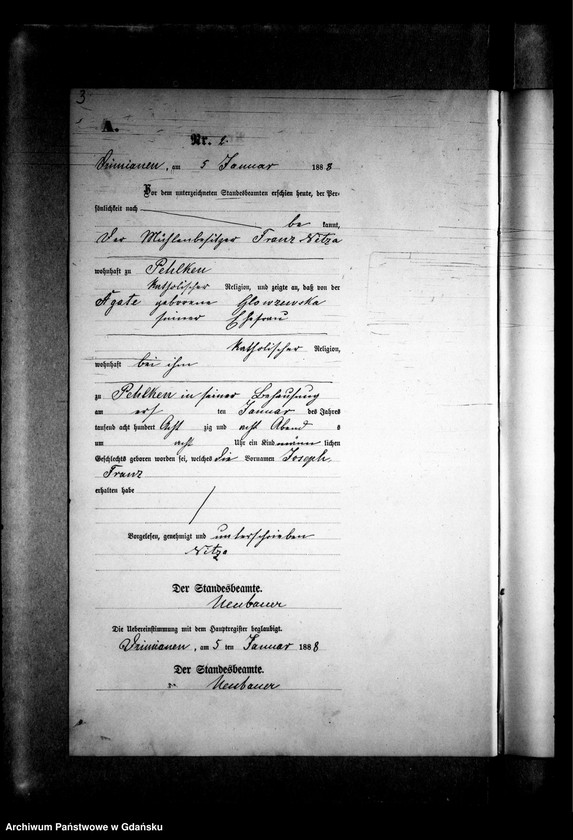 3
A.
Nr. 2
Dzimianen, am 5 Januar 1888
Vor dem unterzeichneten Standesbeamten erschien heute, der Per-
sönlichkeit nach
be kannt,
der Mühlenbesitzer Franz Nitza
wohnhaft zu Pehlken
katholischer Religion, und zeigte an, daß von der
Agate geborene Glowzewska
seiner Ehefrau
katholischer Religion,
wohnhaft bei ihm
zu Pehlken in seiner Behausung
am ers ten Januar des Jahres
tausend acht hundert Acht zig und acht Abend s
um acht Uhr ein Kind männ lichen
Geschlechts geboren worden sei, welches die Vornamen Joseph
Franz
erhalten habe
Vorgelesen, genehmigt und unterschrieben
Nitza
Der Standesbeamte.
Neubauer
Die Uebereinstimmung mit dem Hauptregister beglaubigt.
Dzimianen, am 5 ten Januar 1888
Der Standesbeamte.
Neubauer
Archiwum Państwowe w Gdańsku